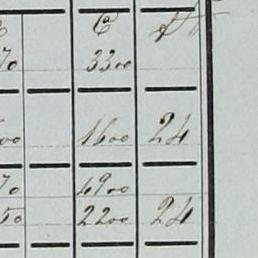 70 3300
00 1600 24
70 4900
50 2200 24